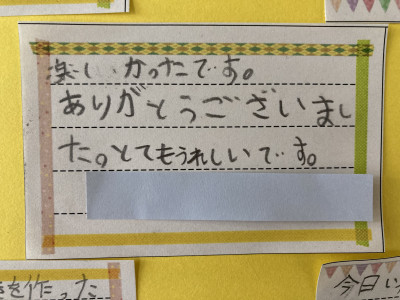 楽しかったです。
ありがとうございまし
た。とてもうれしいです。
を作った
今日い